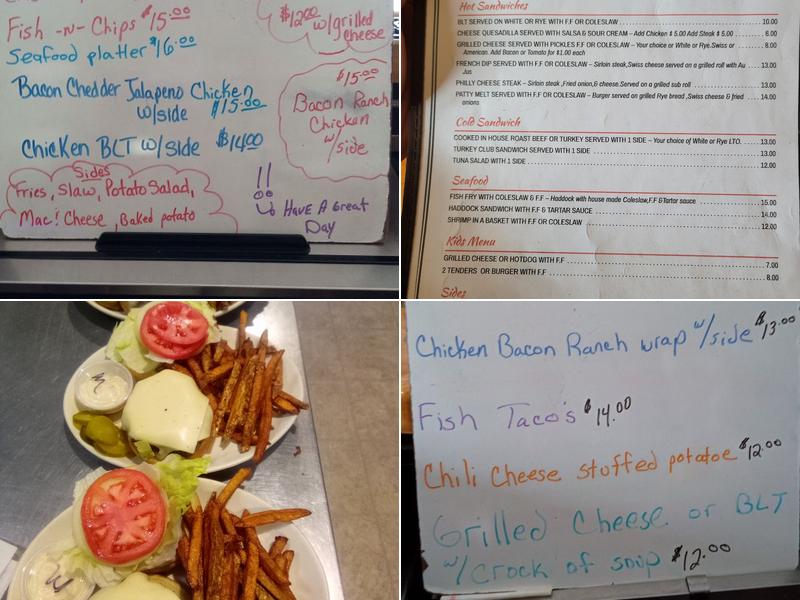 Fish -n- Chips $15.00
Seafood platter $16.00
Bacon Chedder Jalapeno Chicken
w/side $15.00
Chicken BLT w/side $14.00
$12.00 w/grilled
cheese
$15.00
Bacon Ranch
Chicken
w/
side
Sides
Fries, Slaw, Potato Salad,
Mac! Cheese, Baked potato
!!
Have A Great
Day
Hot Sandwiches
BLT SERVED ON WHITE OR RYE WITH F.F OR COLESLAW 10.00
CHEESE QUESADILLA SERVED WITH SALSA & SOUR CREAM – Add Chicken $ 5.00 Add Steak $ 5.00 6.00
GRILLED CHEESE SERVED WITH PICKLES F.F OR COLESLAW – Your choice or White or Rye.Swiss or 8.00
American. Add Bacon or Tomato for $1.00 each
FRENCH DIP SERVED WITH F.F OR COLESLAW – Sirloin steak,Swiss cheese served on a grilled roll with Au 13.00
Jus
PHILLY CHEESE STEAK – Sirloin steak ,Fried onion,& cheese.Served on a grilled sub roll 13.00
PATTY MELT SERVED WITH F.F OR COLESLAW – Burger served on grilled Rye bread ,Swiss cheese & fried 14.00
onions
Cold Sandwich
COOKED IN HOUSE ROAST BEEF OR TURKEY SERVED WITH 1 SIDE – Your choice of White or Rye LTO. 13.00
TURKEY CLUB SANDWICH SERVED WITH 1 SIDE 13.00
TUNA SALAD WITH 1 SIDE 12.00
Seafood
FISH FRY WITH COLESLAW & F.F – Haddock with house made Coleslaw,F.F &Tartar sauce 15.00
HADDOCK SANDWICH WITH F.F & TARTAR SAUCE 14.00
SHRIMP IN A BASKET WITH F.F OR COLESLAW 12.00
Kids Menu
GRILLED CHEESE OR HOTDOG WITH F.F 7.00
2 TENDERS OR BURGER WITH F.F 8.00
Sides
M
Chicken Bacon Ranch wrap w/side $13.00
Fish Taco's $14.00
Chili Cheese stuffed potatoe $12.00
Grilled Cheese or BLT
w/crock of soup $12.00